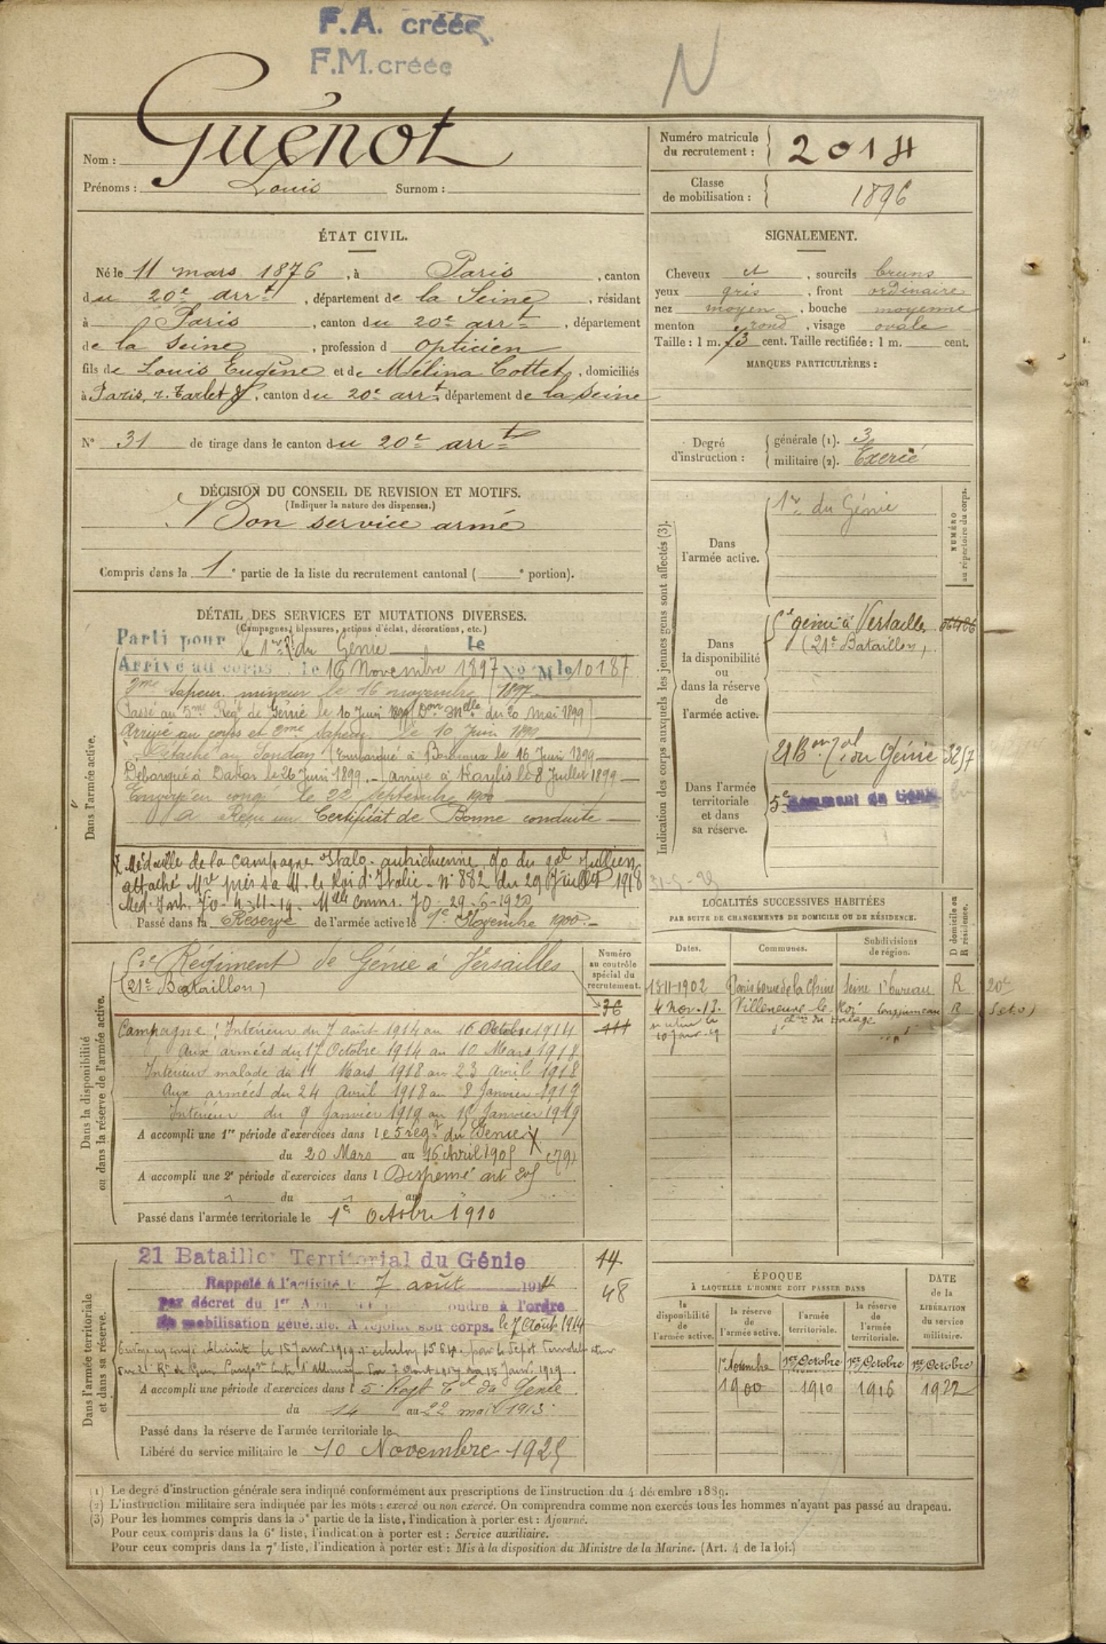 F.A. créée
F.M. créée
N
Nom : Guénot
Prénoms : Louis Surnom :
Numéro matricule du recrutement : 2014
Classe de mobilisation : 1896
ÉTAT CIVIL.
Né le 11 mars 1876, à Paris, canton
du 20e arrt, département de la Seine, résidant
à Paris, canton du 20e arrt, département
de la Seine, profession d opticien
fils de Louis Eugène et de Mélina Cottet, domiciliés
à Paris, r., canton du 20e arrt département de la Seine
No 31 de tirage dans le canton du 20e arrt
SIGNALEMENT.
Cheveux et, sourcils bruns
yeux gris, front ordinaire
nez moyen, bouche moyenne
menton rond, visage ovale
Taille : 1 m. 73 cent. Taille rectifiée : 1 m. cent.
MARQUES PARTICULIÈRES :
Degré d'instruction : générale (1). 3
militaire (2). Exercé
DÉCISION DU CONSEIL DE REVISION ET MOTIFS.
(Indiquer la nature des dispenses.)
Bon service armé
Compris dans la 1e partie de la liste du recrutement cantonal ( e portion).
Indication des corps auxquels les jeunes gens sont affectés (3).
NUMÉRO au répertoire du corps.
Dans l'armée active.
1er du Génie
Dans la disponibilité ou dans la réserve de l'armée active.
5e génie à Versailles
(21e Bataillon)
Dans l'armée territoriale et dans sa réserve.
21 Bon Tal du Génie 3257
5e
DÉTAIL DES SERVICES ET MUTATIONS DIVERSES.
(Campagnes, blessures, actions d'éclat, décorations, etc.)
Dans l'armée active.
Parti pour le 1er Rt du Génie le
Arrivé au corps le 16 Novembre 1897 No Mle 10187
2me Sapeur mineur le 16 novembre 1897
Passé au 5me Régt de Génie le 10 Juin 1899 (Don Mlle du 20 mai 1899)
Arrivé au corps et 2me Sapeur le 10 Juin 1899
Détaché au Soudan (Embarqué à Bordeaux le 16 Juin 1899
Débarqué à Dakar le 26 Juin 1899.-) arrivé à Kaylis le 8 Juillet 1899
Envoyé en congé le 22 septembre 1900
A Reçu un Certificat de Bonne conduite
Médaille de la Campagne Italo-autrichienne, do du gal Jullien
attaché Mre près sa M. le Roi d'Italie - No 882 du 29 Juillet 1918
Passé dans la Réserve de l'armée active le 1er Novembre 1900
LOCALITÉS SUCCESSIVES HABITÉES
PAR SUITE DE CHANGEMENTS DE DOMICILE OU DE RÉSIDENCE.
Dates. Communes. Subdivisions de région. D domicile ou R résidence.
18-11-1902 Paris Seine 1er bureau R 20e
4 Nov. 13. Villeneuve le Roi Longjumeau R
10 janv. 19
Dans la disponibilité ou dans la réserve de l'armée active.
Numéro au contrôle spécial du recrutement.
5e Régiment de Génie à Versailles
(21e Bataillon)
36
Campagne : Intérieur du 7 août 1914 au 16 Octobre 1914
Aux armées du 17 Octobre 1914 au 10 Mars 1918
Intérieur malade du 11 Mars 1918 au 23 Avril 1918
Aux armées du 24 Avril 1918 au 8 Janvier 1919
Intérieur du 9 Janvier 1919 au 15 Janvier 1919
A accompli une 1re période d'exercices dans le 5 régt du Génie
du 20 Mars au 16 Avril 1905
A accompli une 2e période d'exercices dans l Dispensé art
du au
Passé dans l'armée territoriale le 1er Octobre 1910
Dans l'armée territoriale et dans sa réserve.
21 Bataillon Territorial du Génie
14
48
Rappelé à l'activité le 7 août 1914
par décret du 1er à l'ordre
de mobilisation générale. A rejoint son corps. le 7 Août 1914
A accompli une période d'exercices dans l 5 Regt Tal du Génie
du 14 au 22 mai 1913
Passé dans la réserve de l'armée territoriale le
Libéré du service militaire le 10 Novembre 1925
ÉPOQUE
À LAQUELLE L'HOMME DOIT PASSER DANS
DATE de la LIBÉRATION du service militaire.
la disponibilité de l'armée active. la réserve de l'armée active. l'armée territoriale. la réserve de l'armée territoriale.
1er Novembre 1er Octobre 1er Octobre 1er Octobre
1900 1910 1916 1922
(1) Le degré d'instruction générale sera indiqué conformément aux prescriptions de l'instruction du 4 décembre 1889.
(2) L'instruction militaire sera indiquée par les mots : exercé ou non exercé. On comprendra comme non exercés tous les hommes n'ayant pas passé au drapeau.
(3) Pour les hommes compris dans la 5e partie de la liste, l'indication à porter est : Ajourné.
Pour ceux compris dans la 6e liste, l'indication à porter est : Service auxiliaire.
Pour ceux compris dans la 7e liste, l'indication à porter est : Mis à la disposition du Ministre de la Marine. (Art. 4 de la loi.)